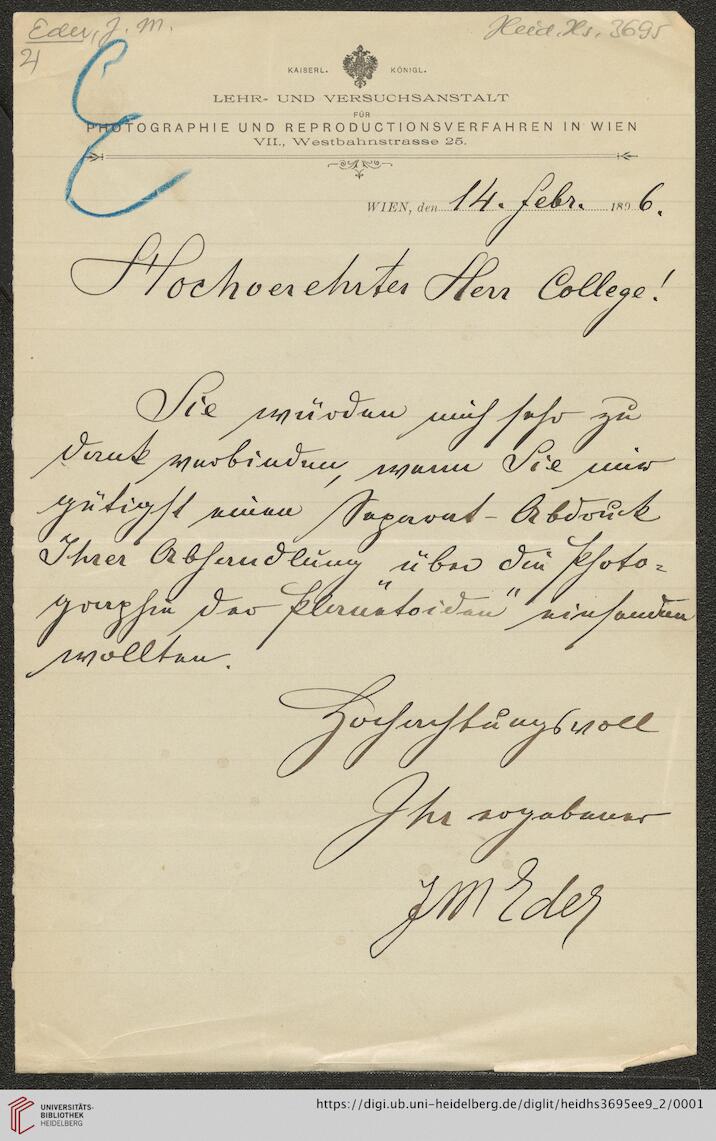 Eder, J. M.
Heid. Hs. 3695
E
KAISERL. KÖNIGL.
LEHR- UND VERSUCHSANSTALT
FÜR
PHOTOGRAPHIE UND REPRODUCTIONSVERFAHREN IN WIEN
VII., Westbahnstrasse 25.
WIEN, den 14. Febr. 1896.
Hochverehrter Herr College!
Sie würden mich sehr zu
Dank verbinden, wenn Sie mir
gütigst einen Separat-Abdruck
Ihrer Abhandlung über die Photo=
graphie der "Planetoiden" einsenden
wollten.
Hochachtungsvoll
Ihr ergebener
JMEder
UNIVERSITÄTS-
BIBLIOTHEK
HEIDELBERG
https://digi.ub.uni-heidelberg.de/diglit/heidhs3695ee9_2/0001